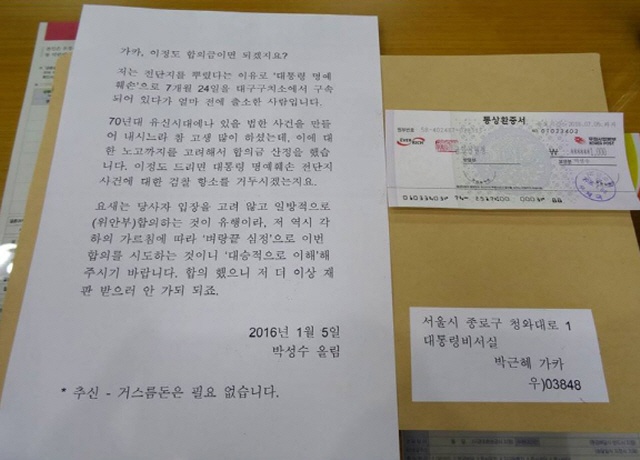 가카, 이정도 합의금이면 되겠지요?
저는 전단지를 뿌렸다는 이유로 '대통령 명예
훼손'으로 7개월 24일을 대구구치소에서 구속
되어 있다가 얼마 전에 출소한 사람입니다.
70년대 유신시대에나 있을 법한 사건을 만들
어 내시느라 참 고생 많이 하셨는데, 이에 대한
노고까지를 고려해서 합의금 산정을 했습
니다. 이정도 드리면 대통령 명예훼손 전단지
사건에 대한 검찰 항소를 거두시겠는지요.
요새는 당사자 입장을 고려 않고 일방적으로
(위안부)합의하는 것이 유행이라, 저 역시 각
하의 가르침에 따라 '벼랑끝 심정'으로 이번
합의를 시도하는 것이니 '대승적으로 이해'해
주시기 바랍니다. 합의 했으니 저 더 이상 재
판 받으러 안 가되 되죠.
2016년 1월 5일
박성수 올림
* 추신 - 거스름돈은 필요 없습니다.
통상환증서
01033403
KOREA POST
서울시 종로구 청와대로 1
대통령비서실
박근혜 가카
우)03848